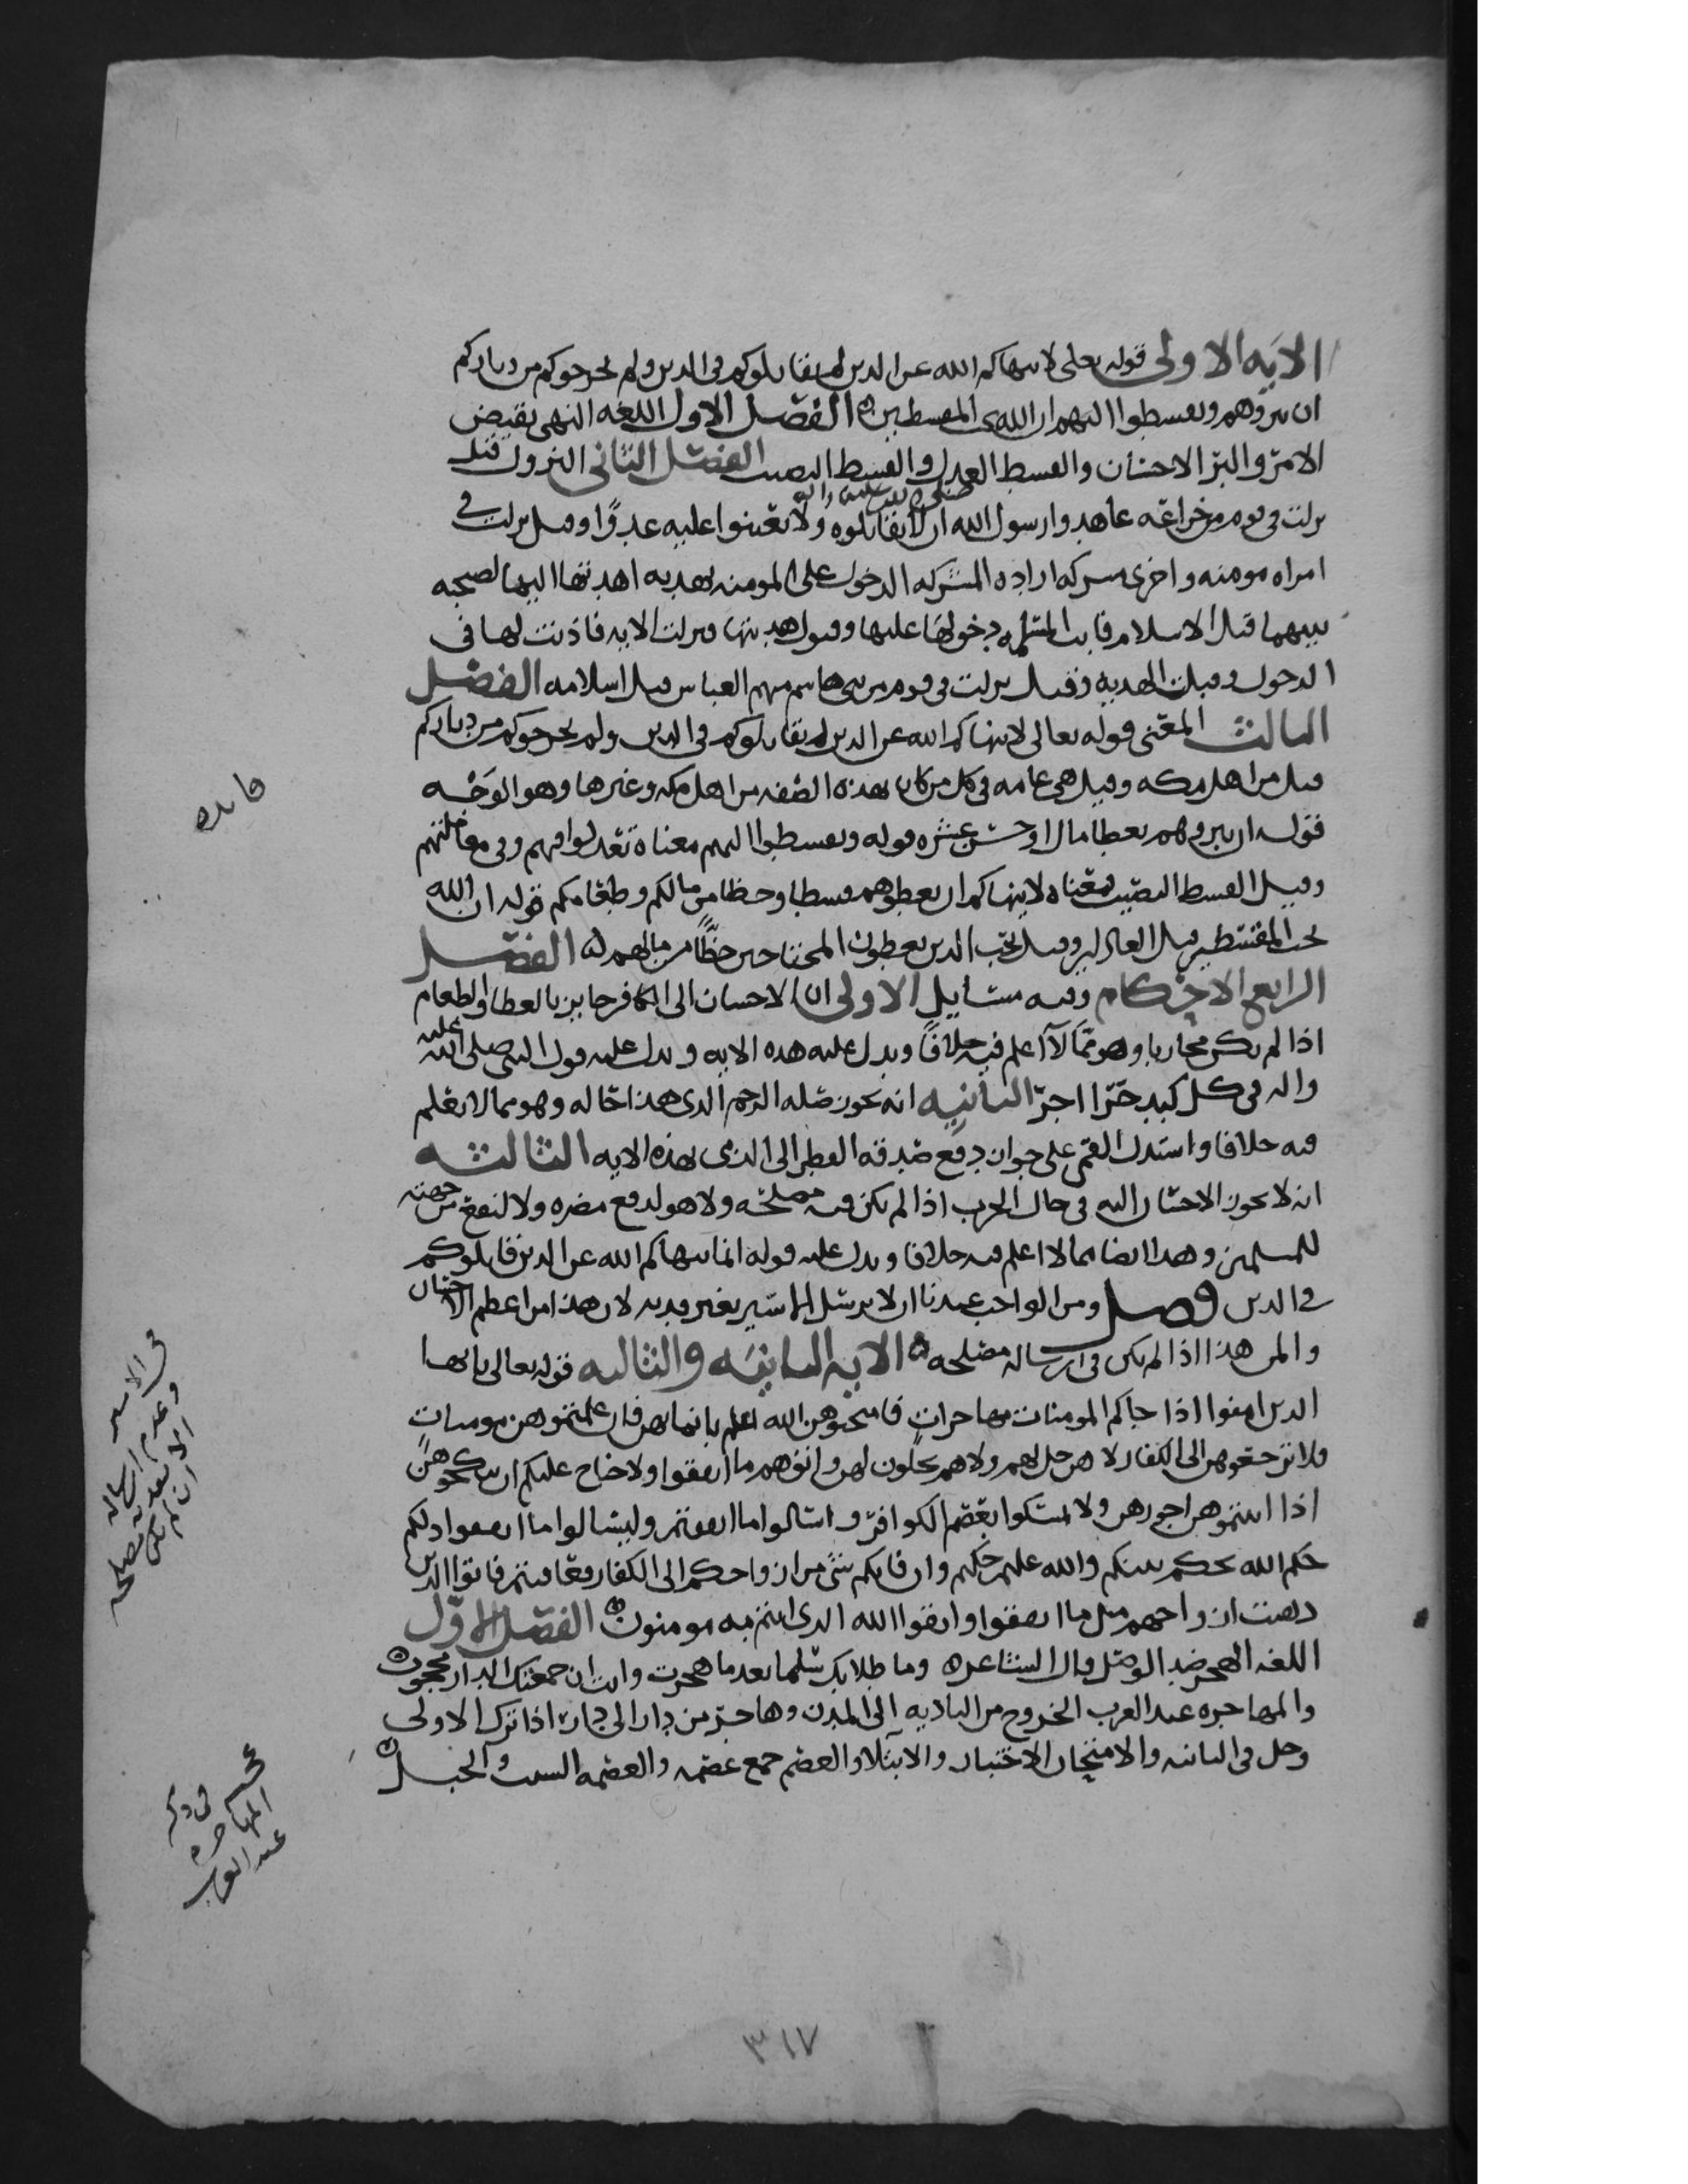 الاية الاولى قوله تعلى لا ينهاكم الله عن الدين لم يقاتلوكم في الدين ولم يخرجوكم من دياركم
ان تبروهم وتقسطوا اليهم ان الله يحب المقسطين الفصل الاول اللغه النهي نقيض
الامر والبر الاحسان والقسط العدل والقسط النصيب الفصل الثاني النزول قيل
نزلت في قوم من خزاعه عاهدوا رسول الله صلى الله عليه واله ان لا يقاتلوه ولا يعينوا عليه عدوًا وقيل نزلت في
امراه مومنه واخرى مشركه اراده المشركه الدخول على المومنه بهديه اهدتها اليها لصحبه
بينهما قبل الاسلام فابت المسلمه دخولها عليها وقبول هديتها ونزلت الايه فاذنت لها في
الدخول وقبلت الهديه وقيل نزلت في قوم من بني هاشم منهم العباس قبل اسلامه الفصل
الثالث المعنى قوله تعالى لا ينهاكم الله عن الدين لم يقاتلوكم في الدين ولم يخرجوكم من دياركم
قيل من اهل مكه وقيل هي عامه في كل من كان بهذه الصفه من اهل مكه وغيرها وهو الوجه
قوله ان تبروهم بعطا مال او حسن عشره قوله وتقسطوا اليهم معناه تعدلوا فيهم وفي معاملتهم
وقيل القسط النصيب فمعناه لا ينهاكم ان تعطوهم قسطا وحظا من مالكم وطعامكم قوله ان الله
يحب المقسطين قيل العادلين وقيل يحب الدين يعطون المحتاجين حظًّا من مالهم الفصل
الرابع الاحكام وفيه مسايل الاولى ان الاحسان الى الكافر جايز بالعطا والطعام
اذا لم يكن محاربا وهو مما لا اعلم فيه خلافًا ويدل عليه هذه الايه ويدل عليه قول النبي صلى الله عليه
واله في كل كبد حرا اجر الثانيه انه يجوز صله الرحم الدي هذا حاله وهو مما لا يعلم
فيه خلافا واستدل القمي على جواز دفع صدقه الفطر الى الذمي بهذه الايه الثالثه
انه لا يجوز الاحسان اليه في حال الحرب اذا لم يكن فيه مصلحه ولا هو لدفع مضره ولا لنفع من جهته
للمسلمين وهذا ايضا مما لا اعلم فيه خلافا ويدل عليه قوله انما ينهاكم الله عن الدين قاتلوكم
في الدين فصل ومن الواجب عندنا ان لا يرسل الاسير بغير فديه لان هذا من اعظم الاحسان
والمن هذا اذا لم يكن في ارساله مصلحه الايه الثانيه والثالثه قوله تعالى يايها
الدين امنوا اذا جاكم المومنات مهاجرات فامتحنوهن الله اعلم بايمانهن فان علمتموهن مومنات
فلا ترجعوهن الى الكفار لا هن حل لهم ولا هم يحلون لهن واتوهم ما انفقوا ولا جناح عليكم ان تنكحوهن
اذا اتيتموهن اجورهن ولا تمسكوا بعصم الكوافر واسالوا ما انفقتم وليسالوا ما انفقوا دلكم
حكم الله يحكم بينكم والله عليم حكيم وان فاتكم شي من ازواجكم الى الكفار فعاقبتم فاتوا الدين
دهبت ازواجهم مثل ما انفقوا واتقوا الله الدي انتم به مومنون الفصل الاول
اللغه الهجر ضد الوصل قال الشاعر وما طلابك سلما بعد ما هجرت وان جمعتك الدار محجوره
والمهاجره عند العرب الخروج من الباديه الى المدن وهاجر من دار الى دار اذا ترك الاولى
وحل في الثانيه والامتحان الاختبار والابتلا والعصم جمع عصمه والعصمه السبب والحبل
فايده
في الاسير
وعدم ارساله
الا بفديه
ان لم يكن مصلحه
في ذكر
المهاجره
عند العرب
٣١٧